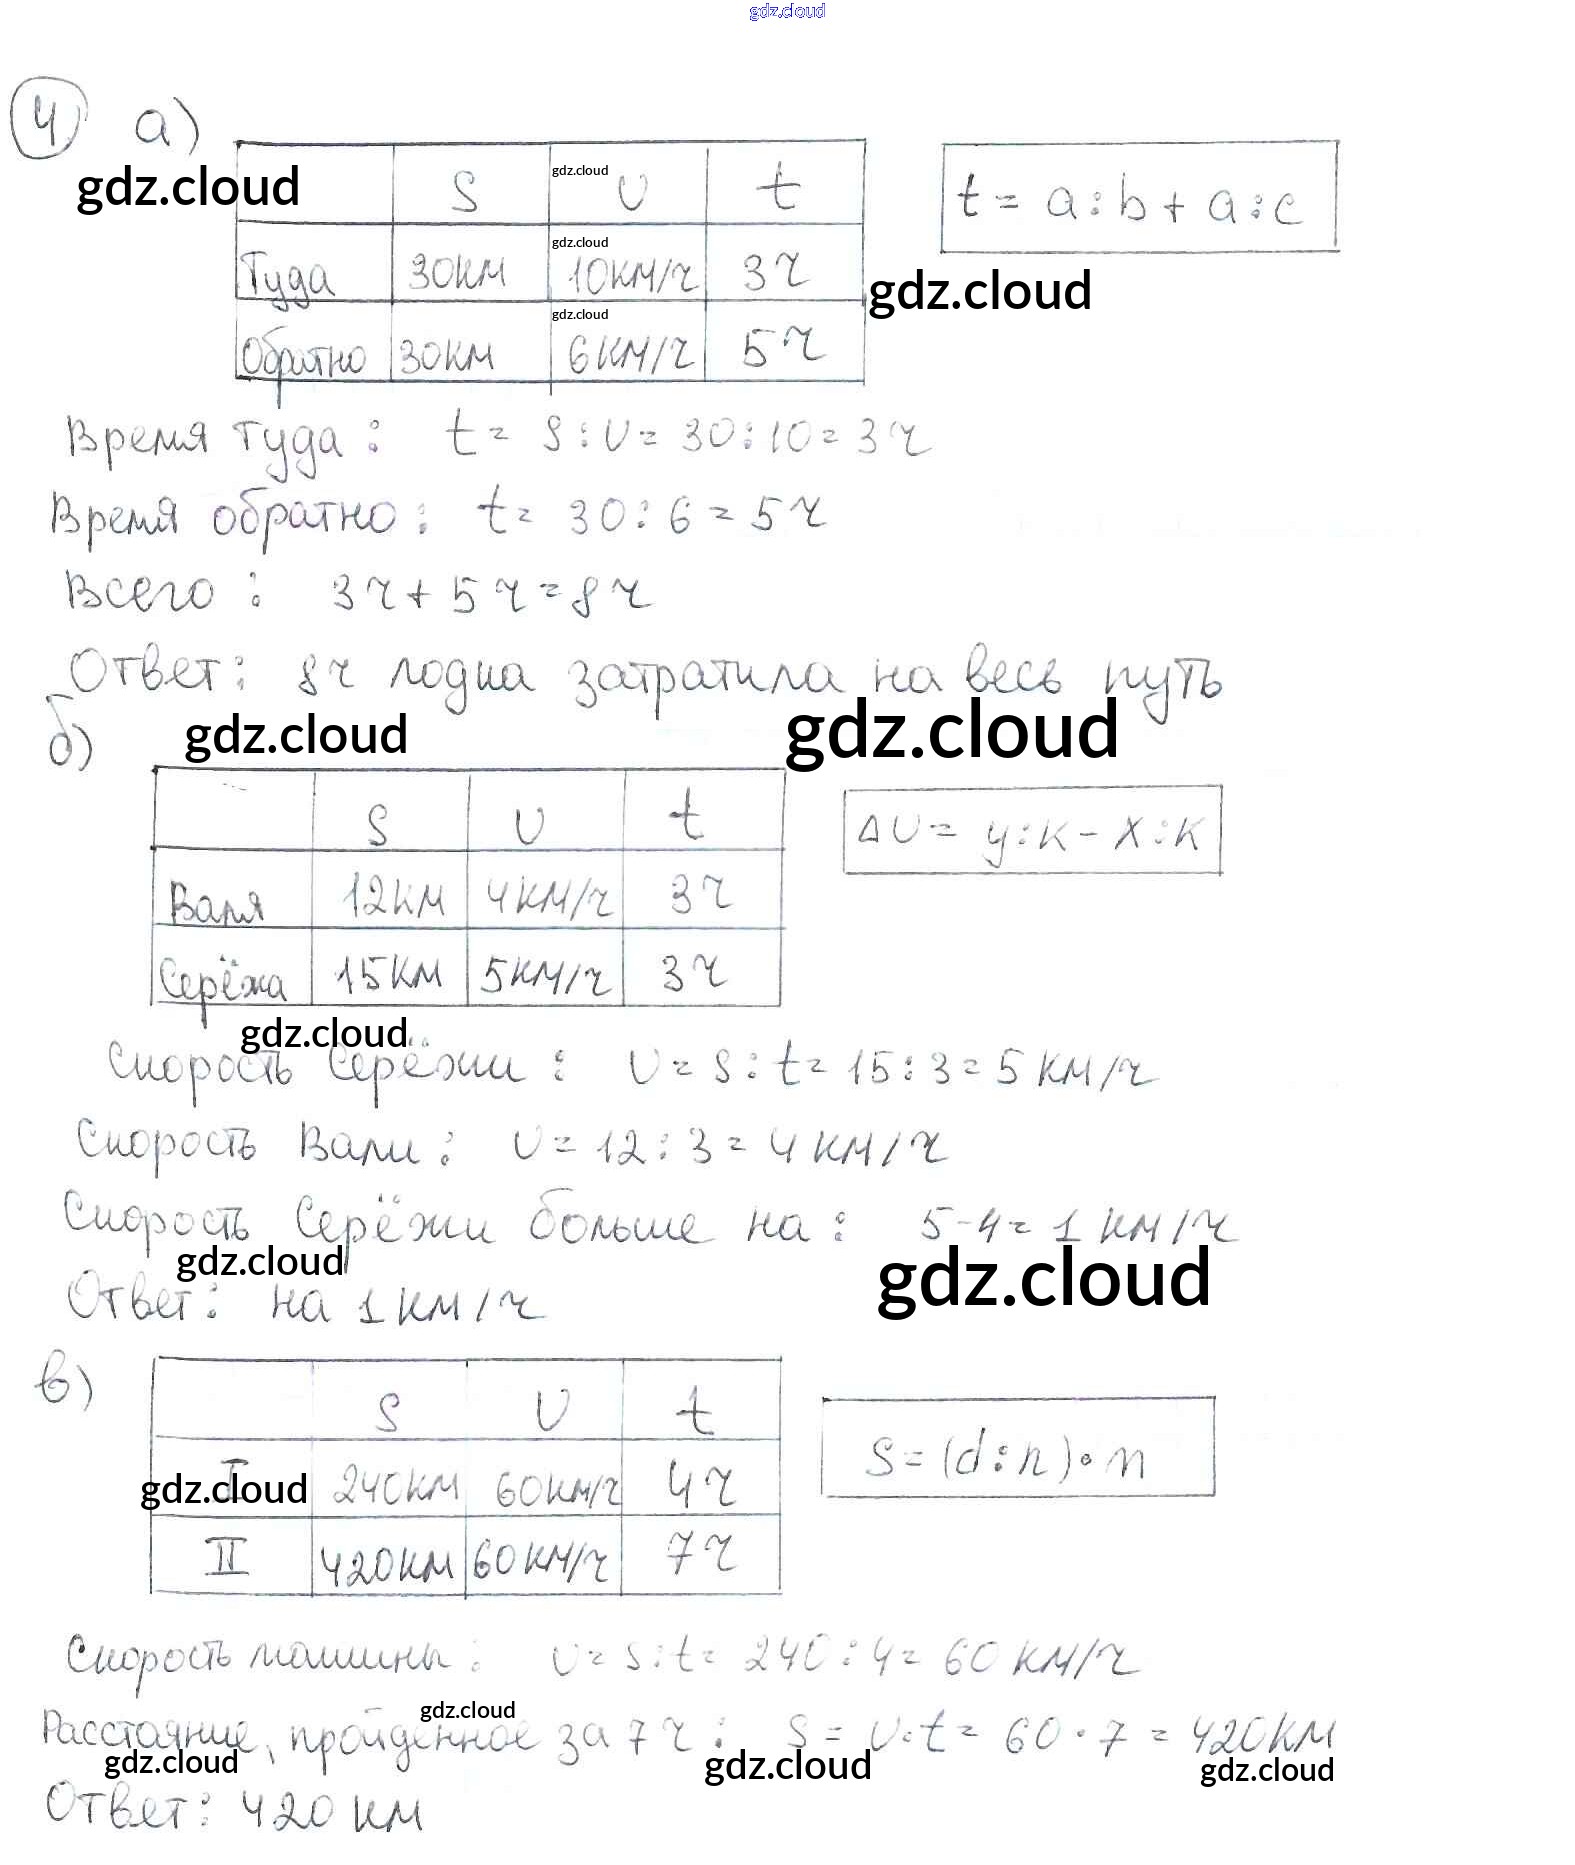 gdz.cloud
4 а)
gdz.cloud
S gdz.cloud υ t
t = a:b + a:c
gdz.cloud
Туда 30км 10км/ч 3ч
gdz.cloud
gdz.cloud
Обратно 30км 6км/ч 5ч
Время туда: t = S:υ = 30:10 = 3ч
Время обратно: t = 30:6 = 5ч
Всего: 3ч + 5ч = 8ч
Ответ: 8ч лодка затратила на весь путь
б)
gdz.cloud
gdz.cloud
S υ t
Δυ = y:k - x:k
Валя 12км 4км/ч 3ч
Серёжа 15км 5км/ч 3ч
gdz.cloud
Скорость Серёжи: υ = S:t = 15:3 = 5км/ч
Скорость Вали: υ = 12:3 = 4км/ч
Скорость Серёжи больше на: 5-4 = 1км/ч
gdz.cloud
gdz.cloud
Ответ: на 1км/ч
в)
S υ t
S = (d:n)·m
I 240км 60км/ч 4ч
gdz.cloud
II 420км 60км/ч 7ч
Скорость машины: υ = S:t = 240:4 = 60км/ч
gdz.cloud
Расстояние, пройденное за 7ч: S = υ·t = 60·7 = 420км
gdz.cloud gdz.cloud gdz.cloud
Ответ: 420км